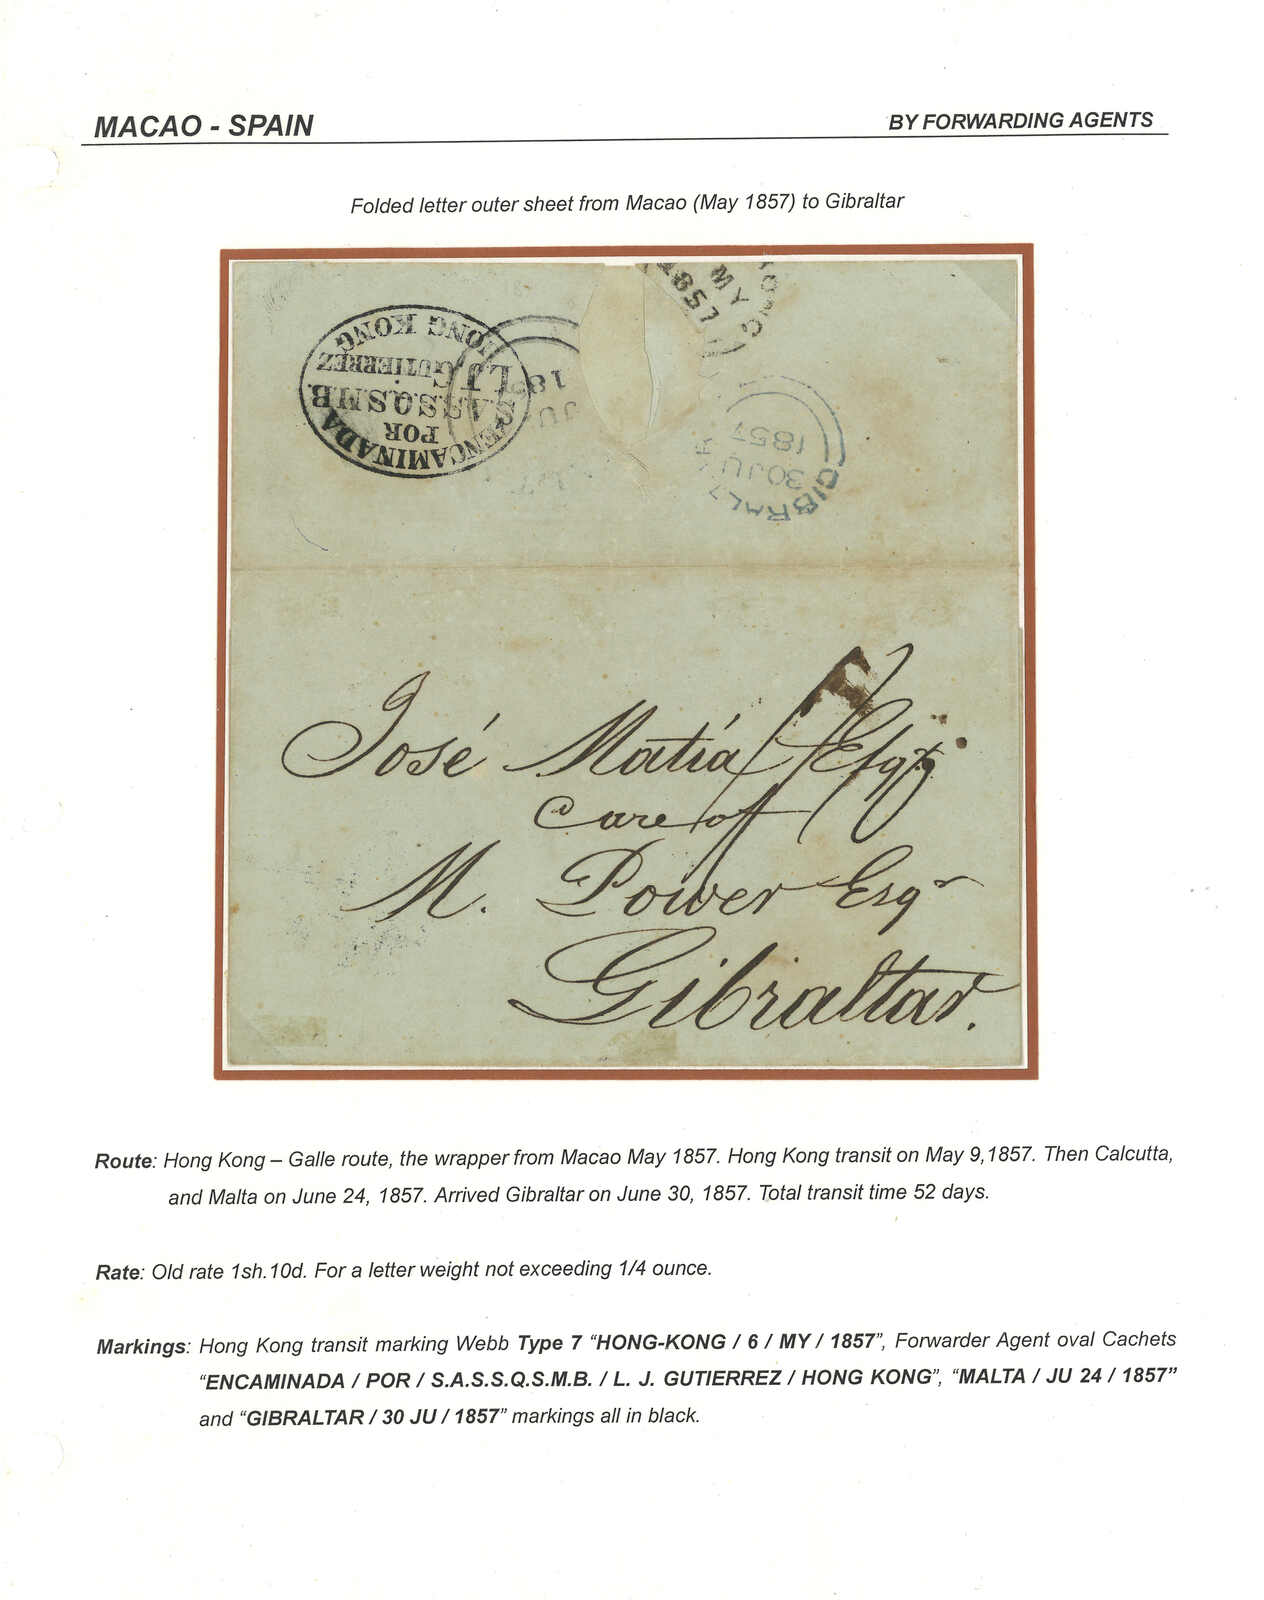 MACAO - SPAIN
BY FORWARDING AGENTS
Folded letter outer sheet from Macao (May 1857) to Gibraltar
KONG
MY
1857
ENCAMINADA
POR
S.A.S.S.Q.S.M.B.
L.J. GUTIERREZ
HONG KONG
JU
18
GIBRALTA
30 JU
1857
José Matía Esqr
care of
M. Power Esqr
Gibraltar.
Route: Hong Kong – Galle route, the wrapper from Macao May 1857. Hong Kong transit on May 9,1857. Then Calcutta,
and Malta on June 24, 1857. Arrived Gibraltar on June 30, 1857. Total transit time 52 days.
Rate: Old rate 1sh.10d. For a letter weight not exceeding 1/4 ounce.
Markings: Hong Kong transit marking Webb Type 7 “HONG-KONG / 6 / MY / 1857”, Forwarder Agent oval Cachets
“ENCAMINADA / POR / S.A.S.S.Q.S.M.B. / L. J. GUTIERREZ / HONG KONG”, “MALTA / JU 24 / 1857”
and “GIBRALTAR / 30 JU / 1857” markings all in black.